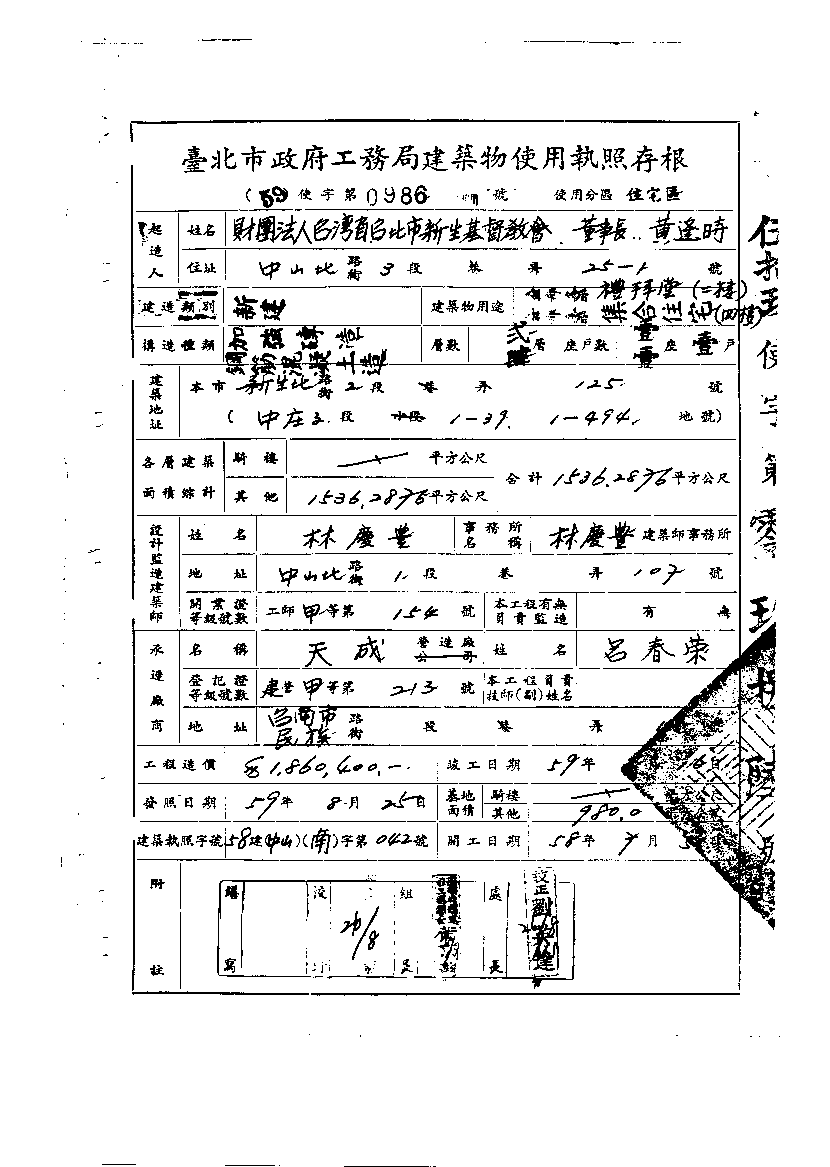 臺北市政府工務局建築物使用執照存根
(59使字第0986號 使用分區 住宅區
起造人 姓名 財團法人台灣省台北市新生基督教會 董事長 黃逢時
住址 中山北路街3段巷弄25-1號
建造類別 新建 建築物用途 禮拜堂(二樓) 集合住宅(四樓)
構造種類 加強磚造 鋼筋混凝土造 層數 貳 層 座戶數 壹座 戶
建築地址 本市 新生北路街2段巷弄125號
(中庄子段 小段 1-39. 1-494. 地號)
各層建築面積綜計 騎樓 平方公尺 合計1536.2876平方公尺
其他 1536.2876平方公尺
設計監造建築師 姓名 林慶豐 事務所名稱 林慶豐建築師事務所
地址 中山北路街1段巷弄107號
開業證等級號數 工師甲等第154號 本工程有無負責監造 有 無
承造廠商 名稱 天成 營造廠公司 姓名 呂春荣
登記證等級號數 建營甲等第213號 本工程負責技師(副)姓名
地址 台南市民族路街段巷弄
工程造價 1,860,400.- 竣工日期 59年 日
發照日期 59年8月25日 基地面積 騎樓
其他 980.0
建築執照字號 58建(中山)(南)字第042號 開工日期 58年 月
附註 繕寫 校對 26/8 組長 處長 技正劉
使字第